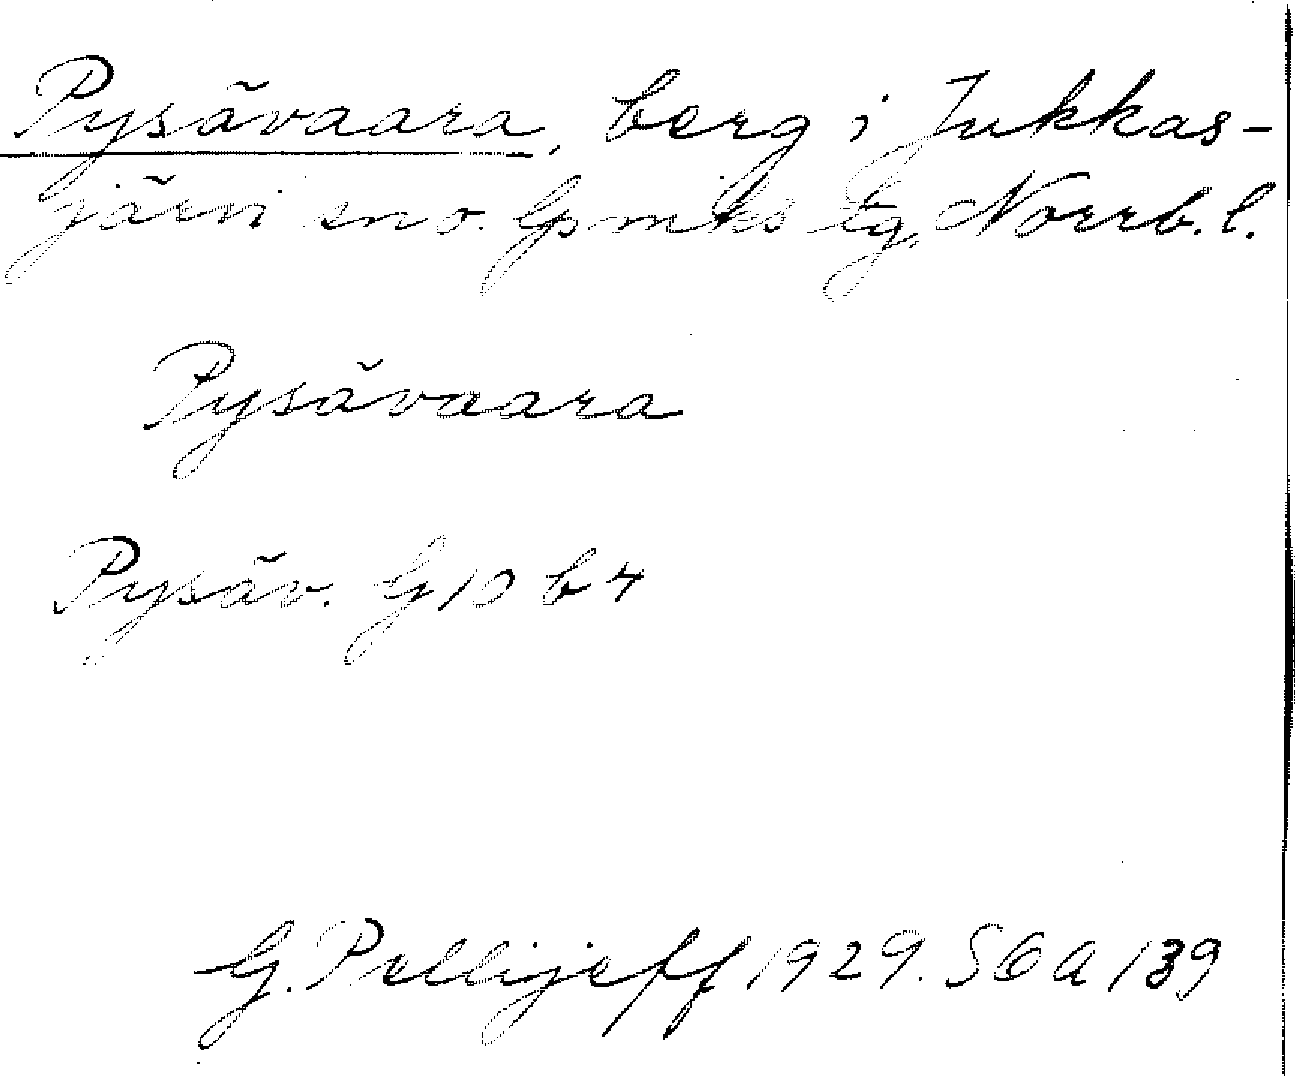 Pysävaara, berg i Jukkas-
järvi sn o. lpmks tg, Norrb. l.
Pysävaara
Pysäv. G 10 b 4
G. Pellijeff 1929. SOA 139